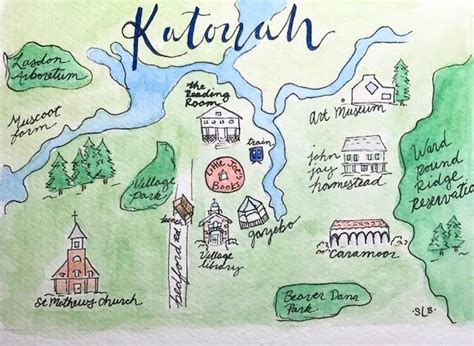 Katonah
Lasdon
Arboretum
Muscoot
farm
the
Reading
Room
Art Museum
train
Little Joe's
Books
john
jay
homestead
Ward
Pound
Ridge
Reservation
Village
Park
bench
Bedford Rd.
Village
library
gazebo
Caramoor
St Mathews Church
Beaver Dam
Park
SLB.